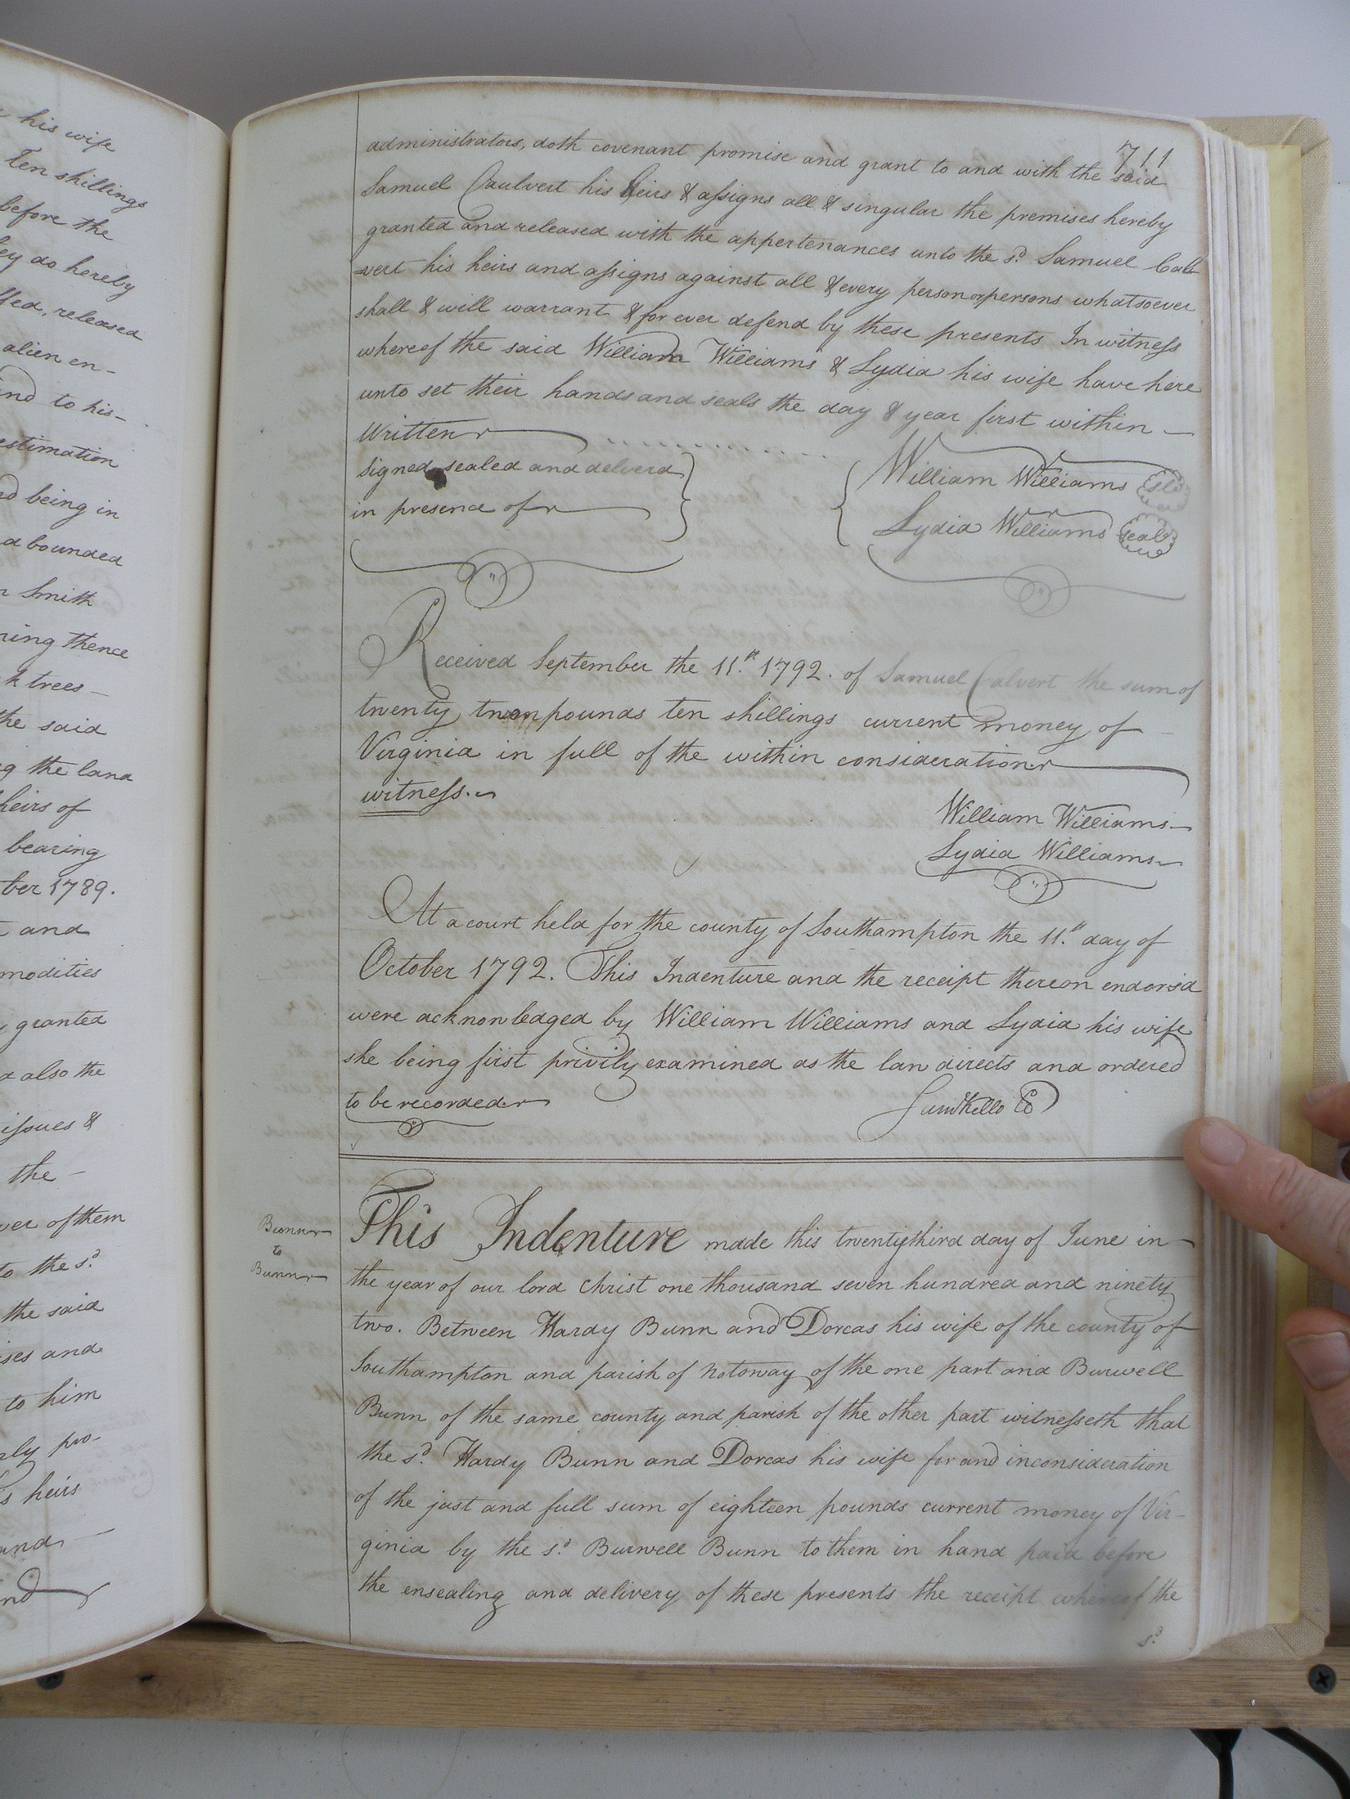 his wife
ten shillings
before the
ey do hereby
ffed, released
alien en-
and to his-
estimation
ed being in
d bounded
n Smith
ning thence
k trees-
the said
g the land
heirs of
bearing
ber 1789.
t and
modities
y granted
d also the
issues &
the-
ver of them
to the sd.
the said
ises and
to him
rly pro-
s heirs
and
nd
711
administrators, doth covenant promise and grant to and with the said
Samuel Caulvert his heirs & assigns all & singular the premises hereby
granted and released with the appertenances unto the sd. Samuel Call
vert his heirs and assigns against all & every person or persons whatsoever
shall & will warrant & for ever defend by these presents In witness
whereof the said William Williams & Lydia his wife have here
unto set their hands and seals the day & year first within-
Written
signed sealed and deliverd
in presence of
William Williams seal
Lydia Williams seal
Received September the 11th. 1792. of Samuel Calvert the sum of
twenty two pounds ten shillings current money of
Virginia in full of the within consideration
witness.
William Williams-
Lydia Williams
At a court held for the county of Southampton the 11th. day of
October 1792. This Indenture and the receipt thereon endorsd
were acknowledged by William Williams and Lydia his wife
she being first privily examined as the law directs and ordered
to be recorded
Saml Kello CC
Bunn
to
Bunn
This Indenture made this twentythird day of June in
the year of our lord Christ one thousand seven hundred and ninety
two. Between Hardy Bunn and Dorcas his wife of the county of
Southampton and parish of Notoway of the one part and Burwell
Bunn of the same county and parish of the other part witnesseth that
the sd. Hardy Bunn and Dorcas his wife for and inconsideration
of the just and full sum of eighteen pounds current money of Vir-
ginia by the sd. Burwell Bunn to them in hand paid before
the ensealing and delivery of these presents the receipt whereof the
sd.